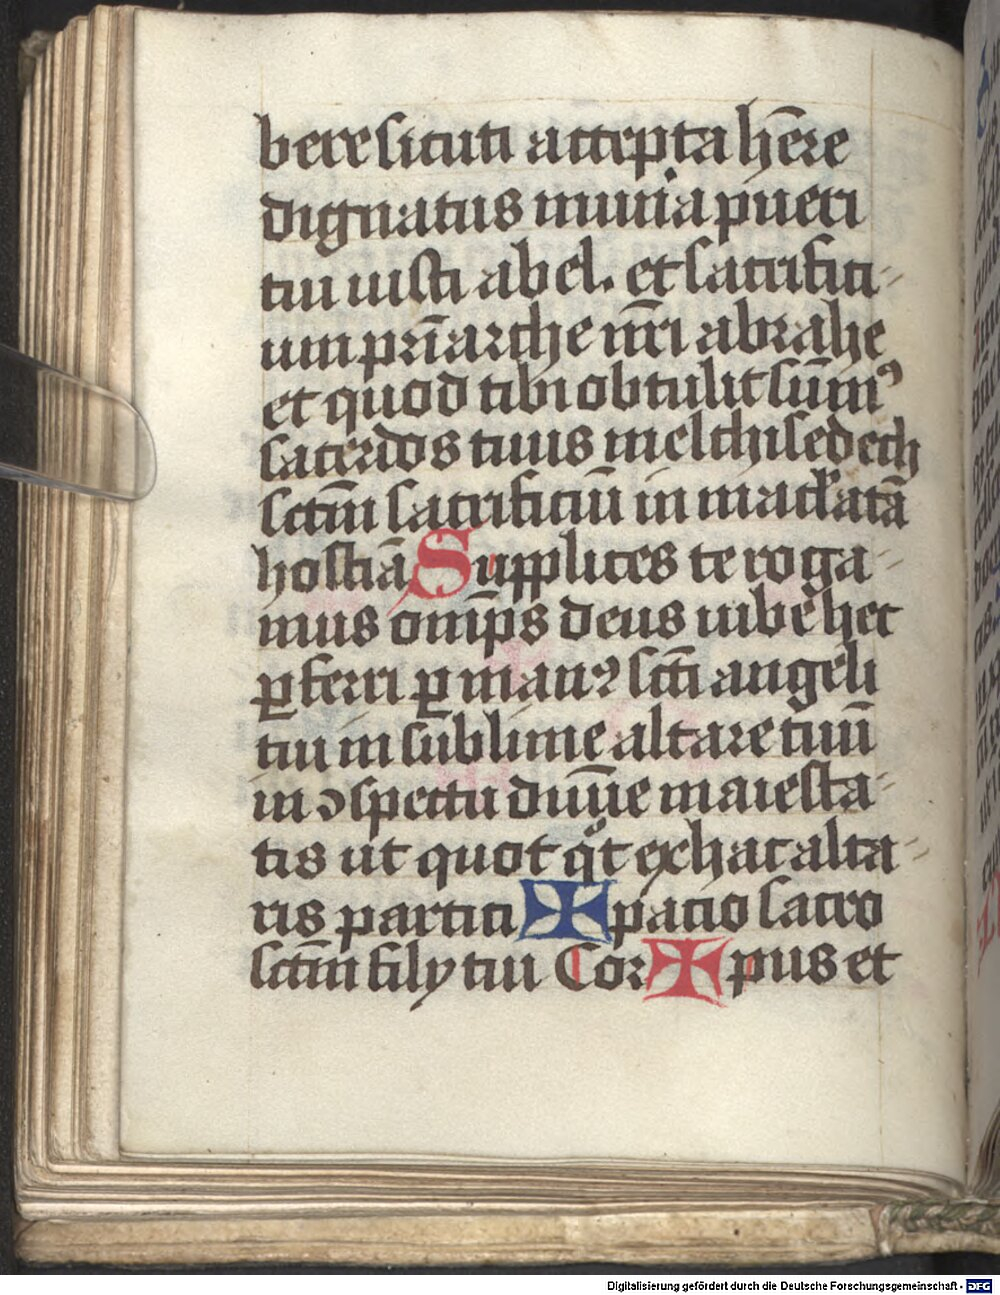 bere sicuti accepta hr̄e
dignatus munia pueri
tui iusti abel. et sacrifici-
um pr̄iarche nr̄i abrahe
et quod tibi obtulit sūmꝰ
sacerdos tuus melchisedech
sctm̄ sacrificiū inmaclatā
hostiā Supplices te roga-
mus om̄ps deus iube hec
ꝑferri ꝑ manꝰ scti angeli
tui in sublime altare tuū
in ꝯspectu diuīe maiesta-
tis ut quot qͦt ex hac alta-
ris partici ✠ patio sacro
sctm̄ filij tui Cor ✠ pus et
Digitalisierung gefördert durch die Deutsche Forschungsgemeinschaft - DFG